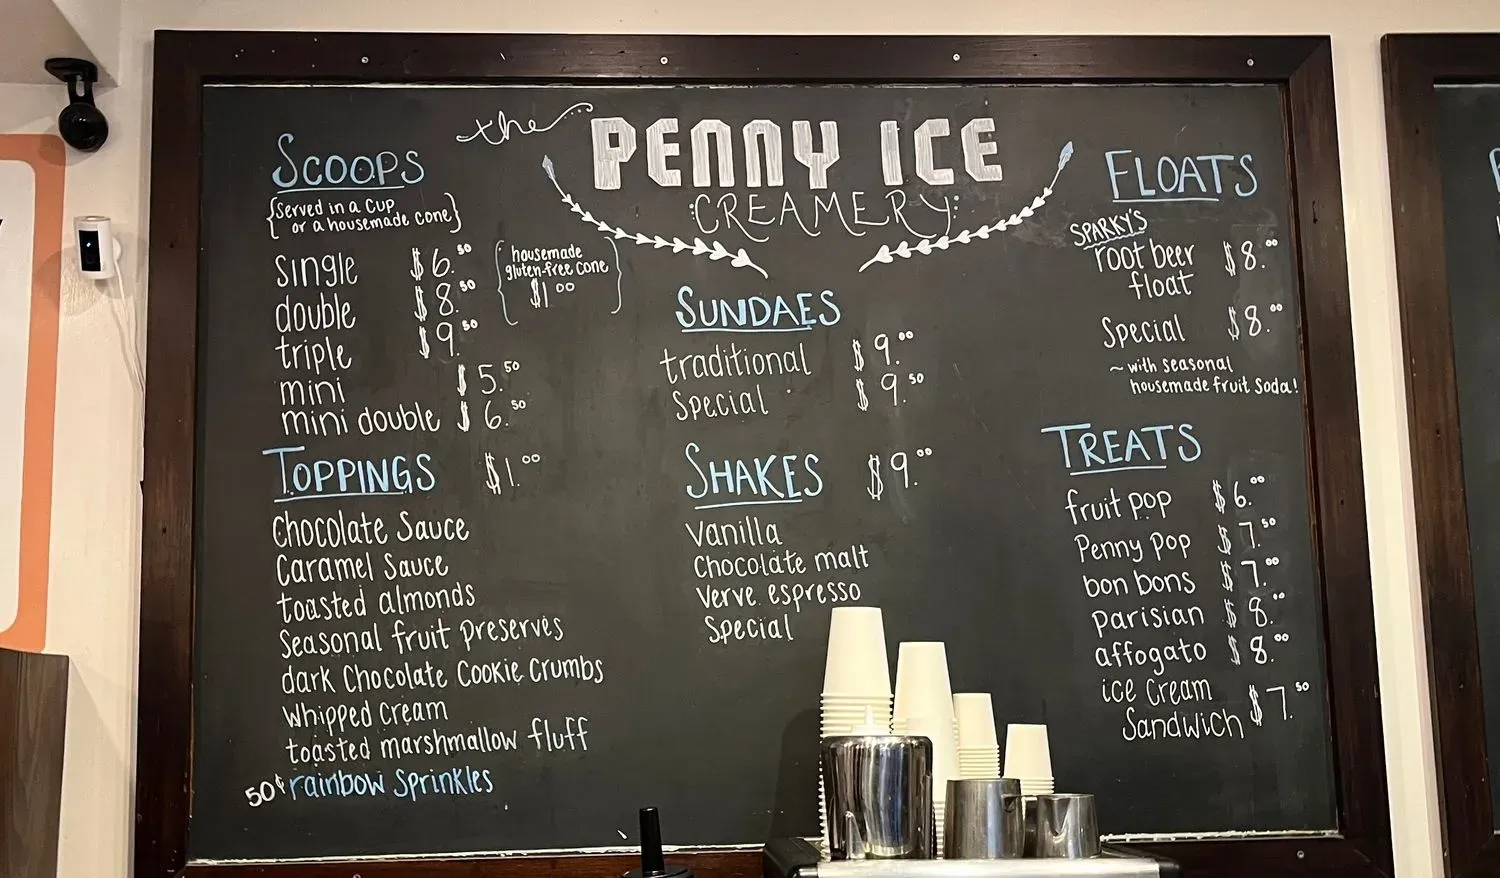 the PENNY ICE
CREAMERY
SCOOPS
{served in a cup
or a housemade cone}
single $6.50
double $8.50
triple $9.50
mini $5.50
mini double $6.50
{housemade
gluten-free cone
$1.00}
TOPPINGS $1.00
Chocolate Sauce
Caramel Sauce
toasted almonds
Seasonal fruit preserves
dark Chocolate Cookie Crumbs
whipped cream
toasted marshmallow fluff
50¢ rainbow Sprinkles
SUNDAES
traditional $9.00
Special $9.50
SHAKES $9.00
Vanilla
Chocolate malt
Verve espresso
Special
FLOATS
SPARKY'S
root beer $8.00
float
Special $8.00
~ with seasonal
housemade fruit soda!
TREATS
fruit pop $6.00
Penny Pop $7.50
bon bons $7.00
Parisian $8.00
affogato $8.00
ice Cream
Sandwich $7.50